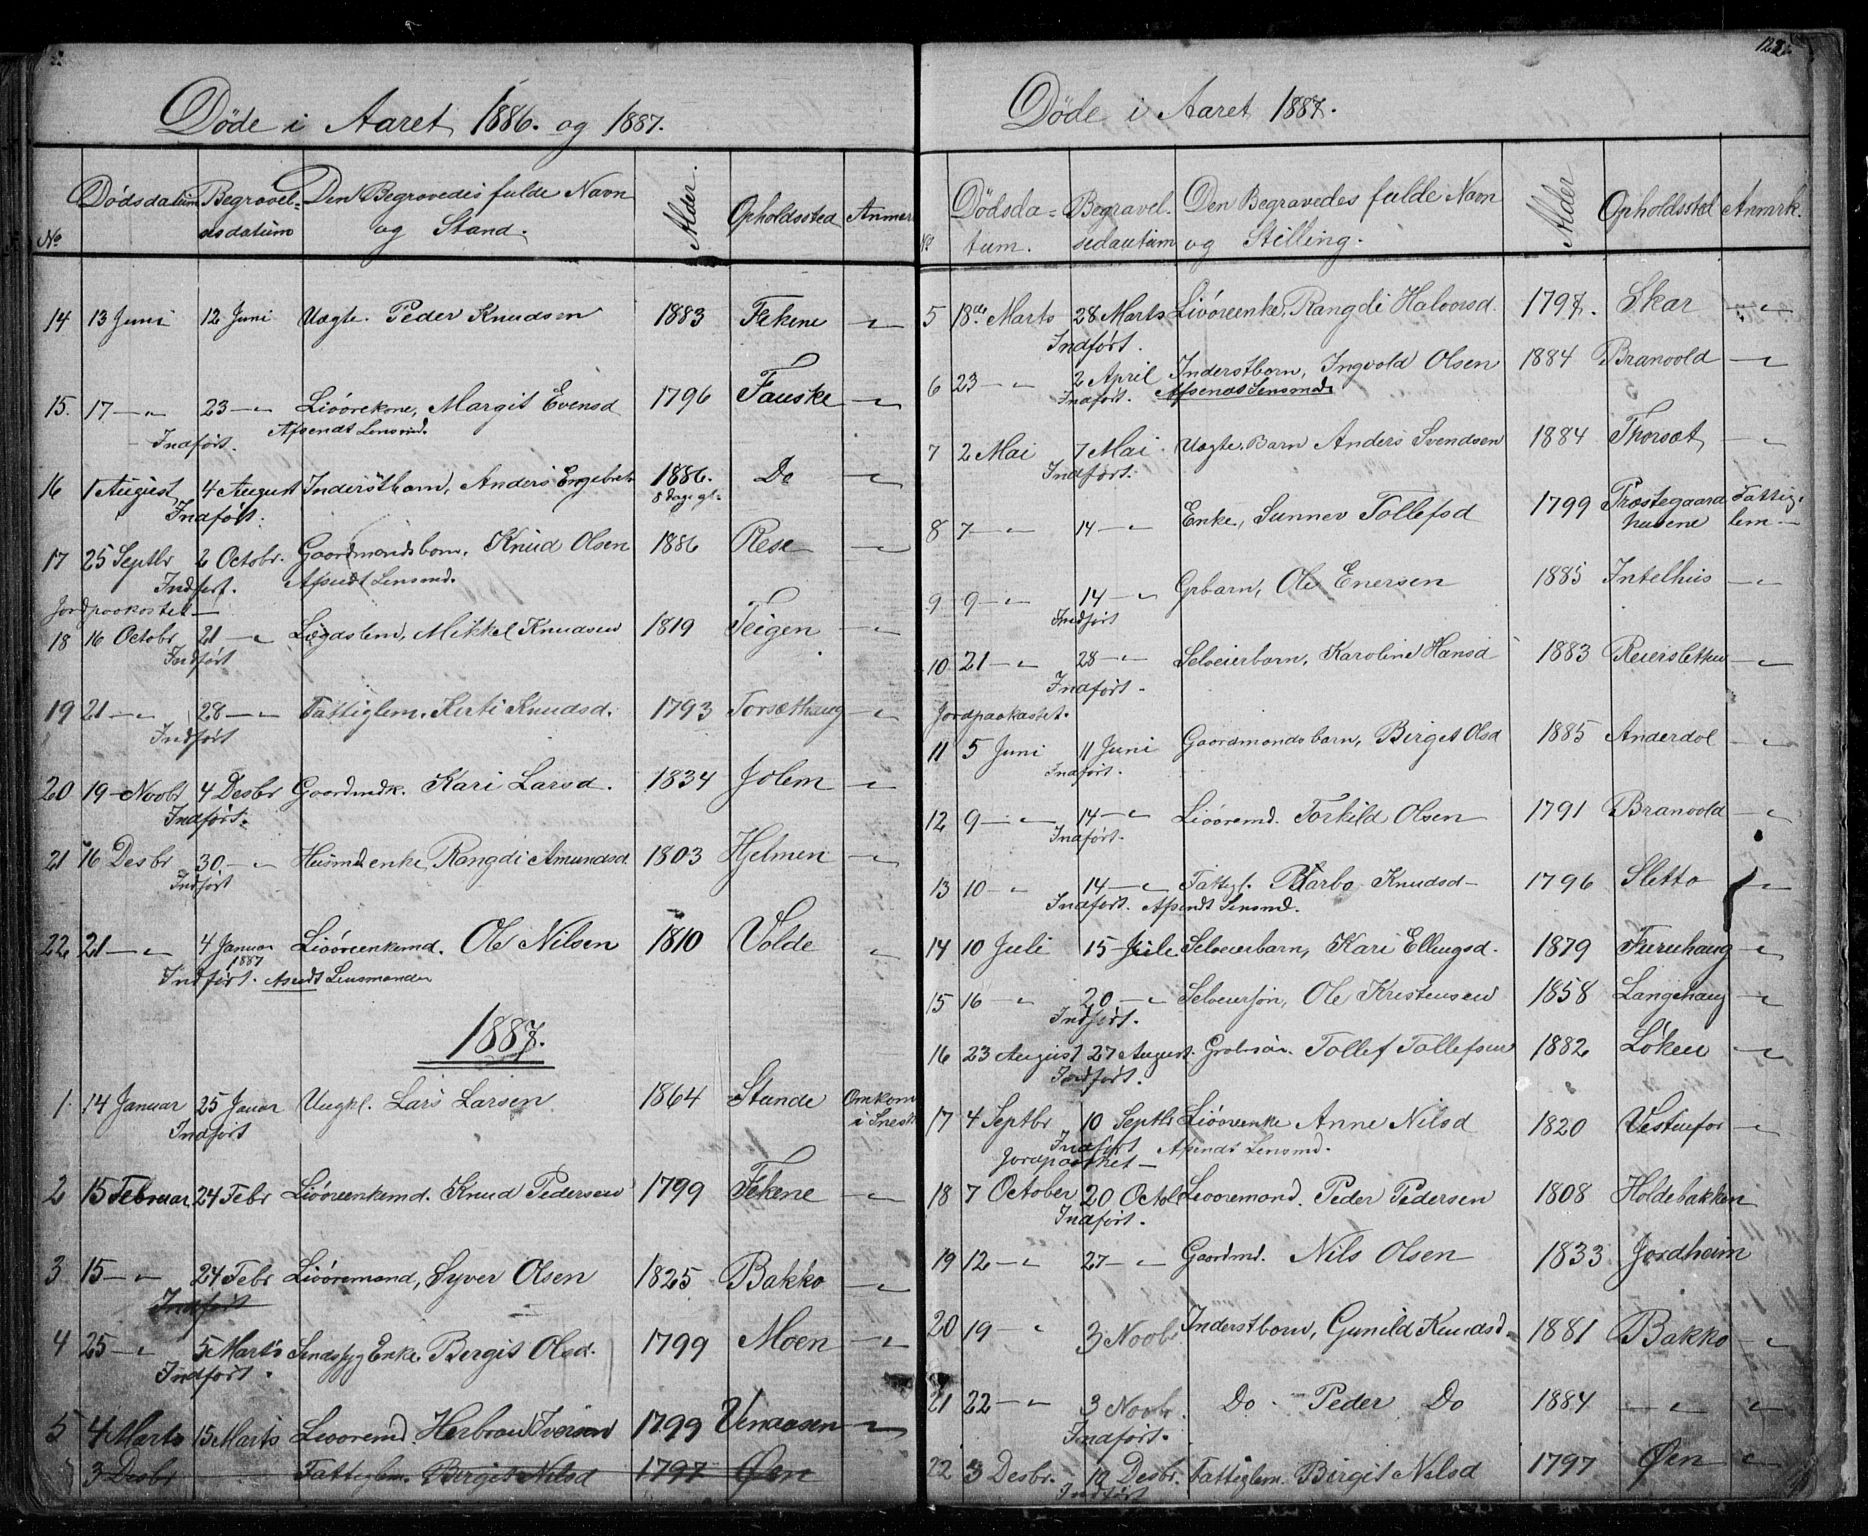 Døde i Aaret 1886. og 1887.
No
Dødsdatum
Begravel-
sesdatum
Den Begravedes fulde Navn
og Stand.
Alder.
Opholdssted
Anmer
14 13 Juni 12 Juni Uægte. Peder Knudsen 1883 Fekene -"-
15. 17 -"- 23 -"- Livørekone, Margit Evensd 1796 Fauske -"-
Indført. Afsendt Lensmd.
16 1 August 4 August Inderstbarn, Anders Engebrets 1886. Do -"-
Indført. 8 dage gl.
17 25 Septbr 2 Octobr. Gaardmandsbarn. Knud Olsen 1886 Rese -"-
Indført. Afsendt Lensmd.
Jordpaakastet
18 16 Octobr 21 -"- Lægdslem, Mikkel Knudsen 1819 Teigen -"-
Indført
19 21 -"- 28 -"- Fattiglem. Kirti Knudsd. 1793 Torsæthaug -"-
Indført
20 19 Novbr 4 Desbr Gaardmdk. Kari Larsd. 1834 Jolem -"-
Indført.
21 16 Desbr 30 -"- Husmdenke Rangdi Amundsd 1803 Hjelmen -"-
Indført
22 21 -"- 4 Januar Livøreenkemd. Ole Nilsen 1810 Volde "
1887
Indført. Afsendt Lensmanden
1887.
1. 14 Januar 25 Januar Ungkl. Lars Larsen 1864 Stande Omkom
Indført i Snesk
2 15 Februar 24 Febr Livøreenkemd. Knud Pedersen 1799 Fekene -"-
3 15 -"- 24 Febr Livøremand, Syver Olsen 1825 Bakko -"-
Indført
4 25 -"- 5 Marts Sindssyg Enke Bergit Olsd. 1799 Moen -"-
Indført.
5 4 Marts 15 Marts Livøremd. Herbrand Iversen 1799 Venaasen -"-
3 Desbr Fattiglem. Birgit Nilsd 1797 Øen
122
Døde i Aaret 1887.
No
Dødsda-
tum.
Begravel-
sesdautum
Den Begravedes fulde Navn
og Stilling.
Alder
Opholdssted
Anmrk.
5 18de Marts 28 Marts Livøreenke, Rangdi Halvorsd. 1797. Skar -"-
Indført.
6 23 -"- 2 April Inderstbarn, Ingvold Olsen 1884 Branvold -"-
Indført. Afsendt Lensmd.
7 2 Mai 7 Mai Uægte. Barn Anders Svendsen 1884 Thorsæt -"-
Indført.
8 7 -"- 14 -"- Enke, Sunnev Tollefsd 1799 Præstegaard Fattig-
husene lem -
9 9 -"- 14 -"- Gpbarn, Ole Enersen 1885 Intelhus -"-
Indført
10 21 -"- 28 -"- Selveierbarn, Karoline Hansd 1883 Reiersletten -"-
Indført.
Jordpaakastet.
11 5 Juni 11 Juni Gaardmandsbarn, Birget Olsd 1885 Anderdol -"-
Indført.
12 9 -"- 14 -"- Livøremd. Torkild Olsen 1791 Branvold -"-
Indført.
13 10 -"- 14 -"- Fattigl. Barbo Knudsd 1796 Sletto -"-
Indført. Afsendt Lensmd.
14 10 Juli 15 Juli Selveierbarn, Kari Ellingsd. 1879 Furuhaug -"-
15 16 " 20 -"- Selveiersøn, Ole Kristensen 1858 Langehaug -"-
Indført.
16 23 August 27 August. Tollef Tollefsen 1882 Løken -"-
Indført.
17 4 Septbr 10 Septbr Livøreenke Anne Nilsd 1820 Vestenfor -"-
Indført Afsendt Lensmd.
Jordpaaket
18 7 October 20 Octob Livøremand. Peder Pedersen 1808 Holdebakken
Indført.
19 12 -"- 27 -"- Gaardmd. Nils Olsen 1833 Jordheim
20 19 -"- 3 Novbr Inderstbarn, Gunild Knudsd. 1881 Bakko -"-
21 22 -"- 3 Novbr. Do - Peder Do 1884 -"- "
Indført.
22 3 Desbr. 10 Desbr. Fattiglem. Birgit Nilsd 1797 Øen -"-
Indført